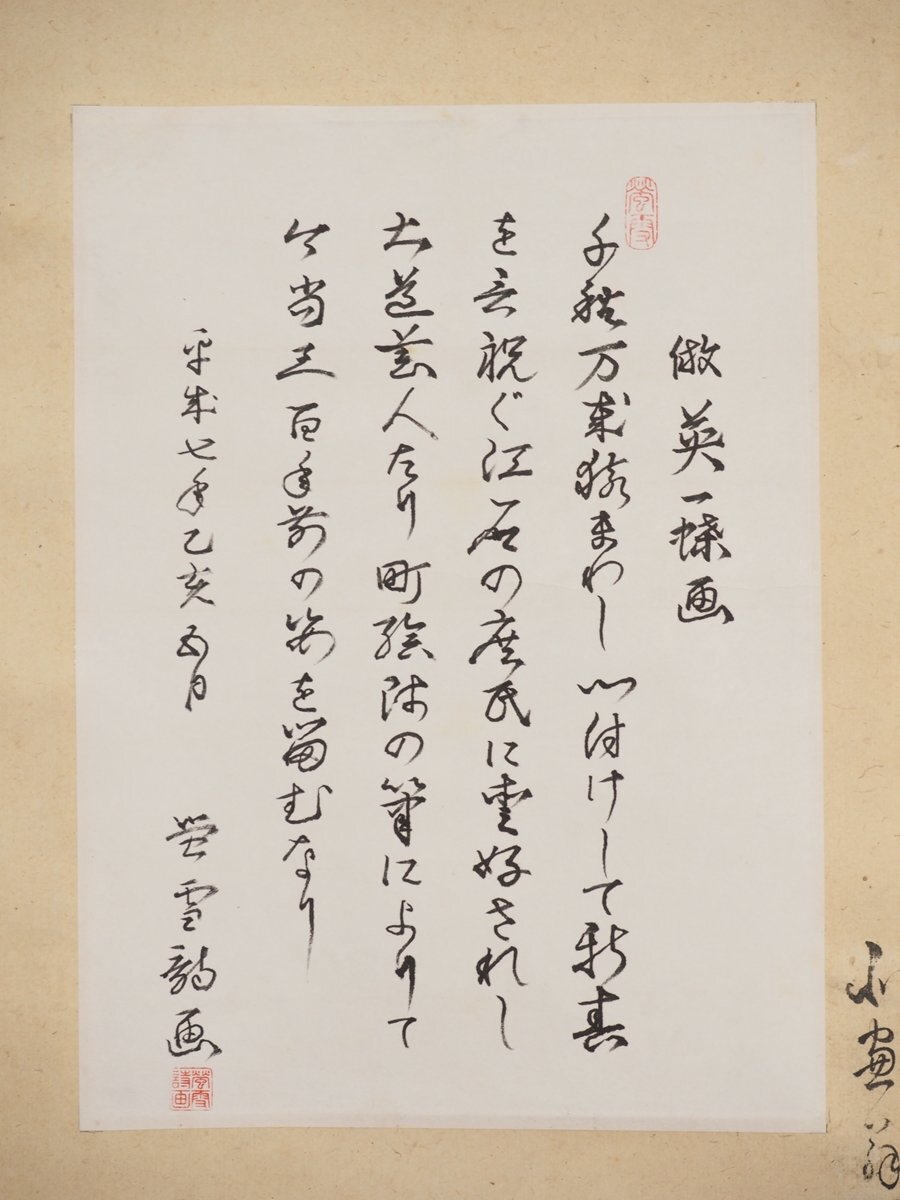 螢雪
倣英一蝶画
千穐万歳猿まわし 心付けして新春
を言祝ぐ江戸の庶民に愛好されし
大道芸人たり町絵師の筆によりて
今尚三百年前の姿を留むなり
平成七年乙亥五月
螢雪 画
螢雪
詩画